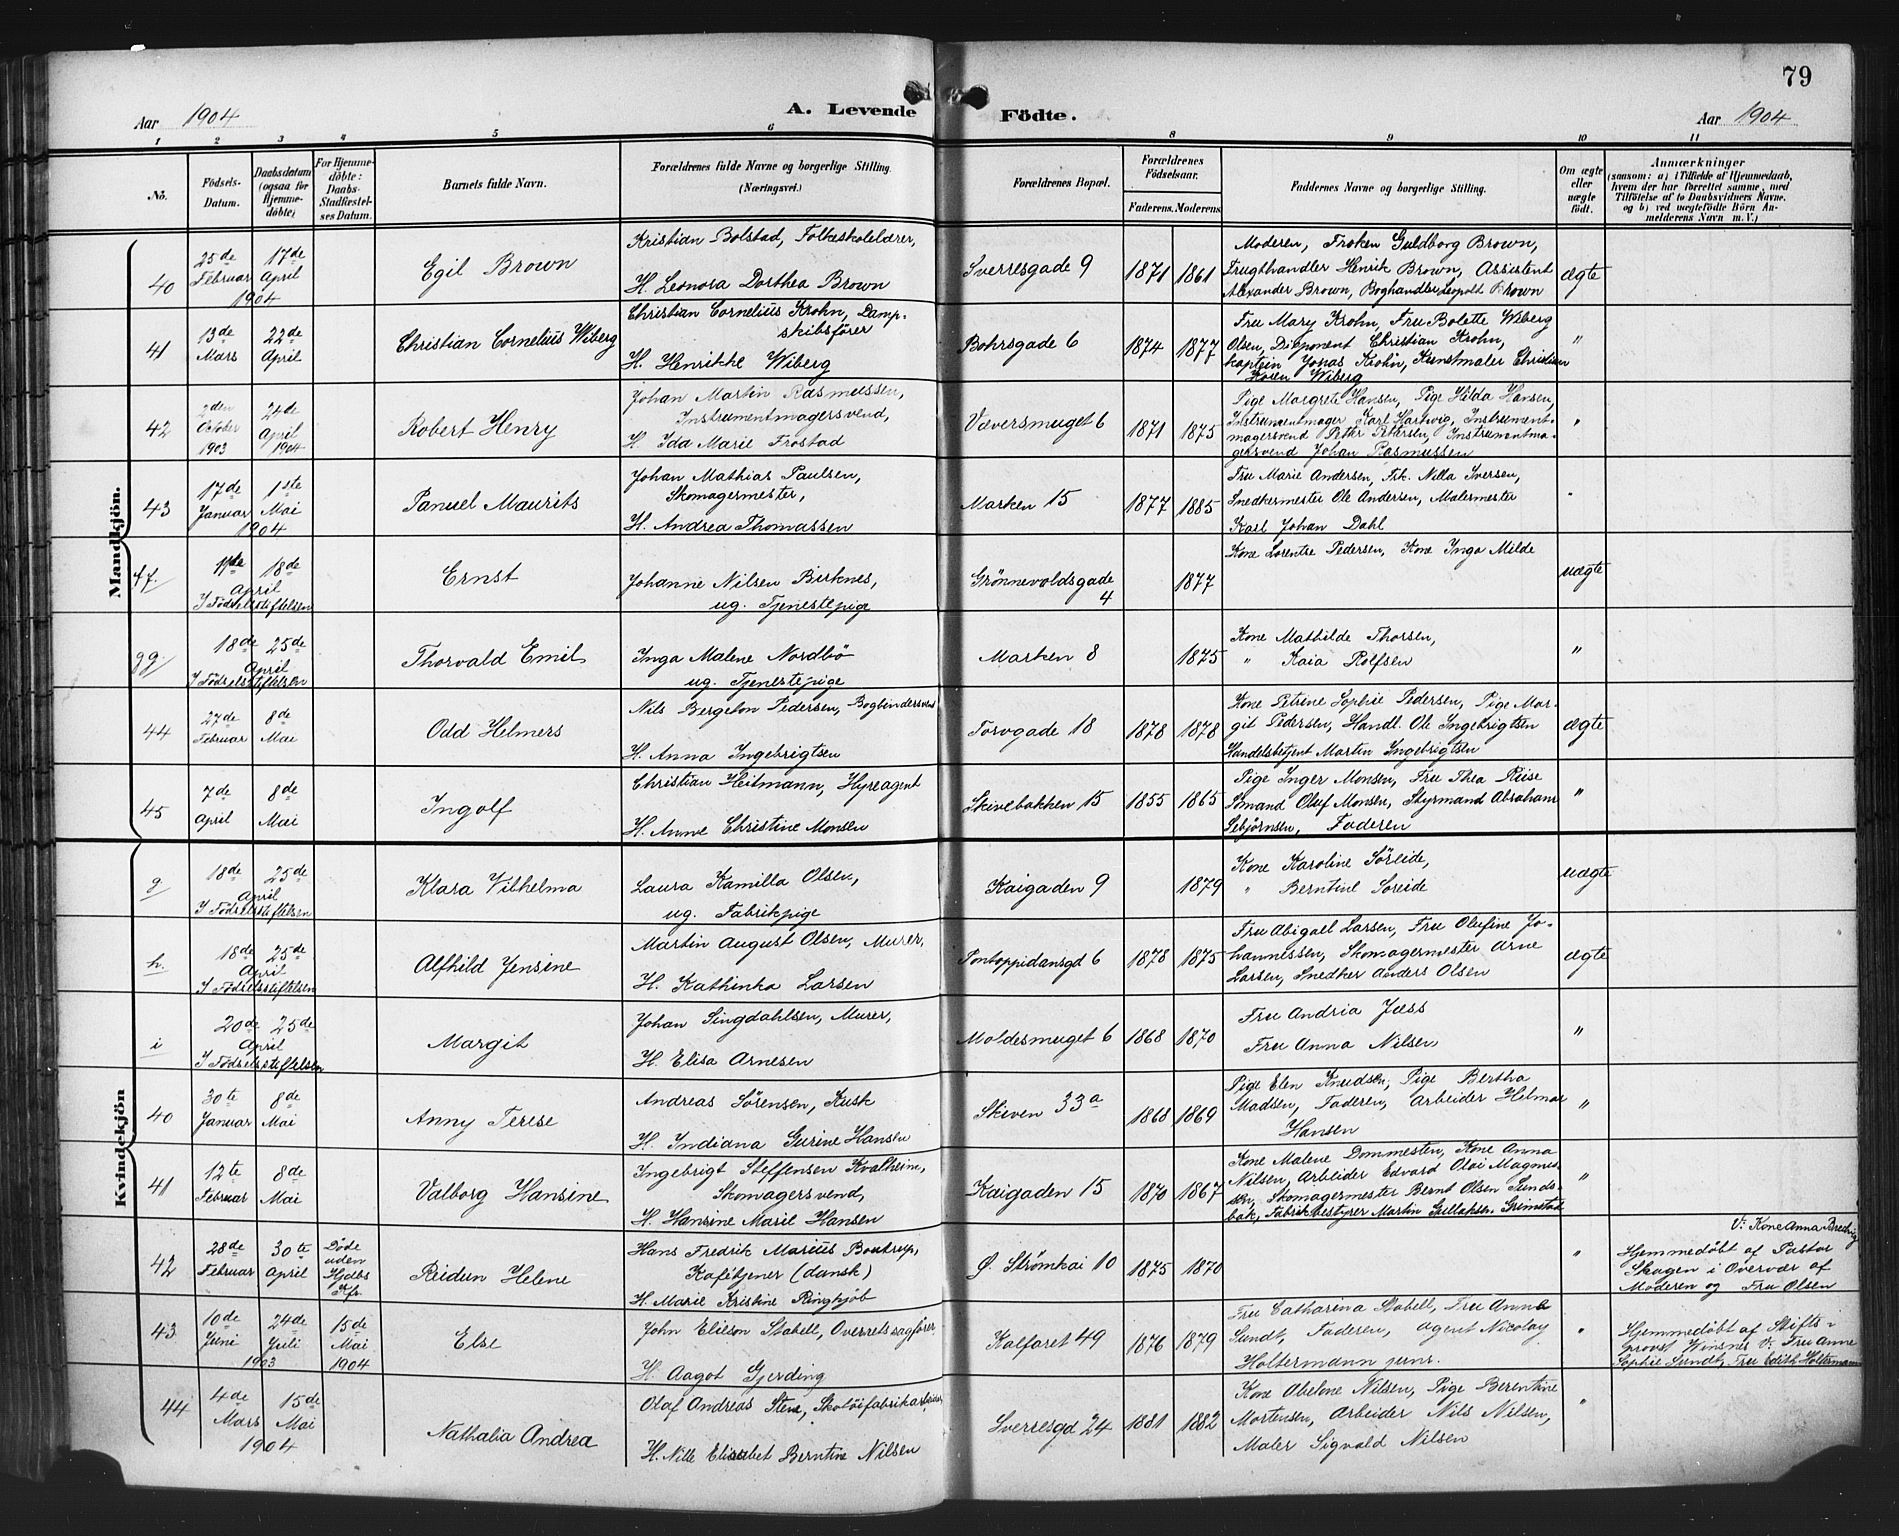 79
Aar 1904
A. Levende Födte.
Aar 1904
1 2 3 4 5 6 8 9 10 11
No.
Födsels-Datum.
Daabsdatum (ogsaa for Hjemme-döbte)
For Hjemme-döbte: Daabs-Stadfæstel-ses Datum.
Barnets fulde Navn.
Forældrenes fulde Navne og borgerlige Stilling (Næringsvei.)
Forældrenes Bopæl.
Forældrenes Födselsaar.
Faderens. Moderens
Faddernes Navne og borgerlige Stilling.
Om ægte eller uægte födt.
Anmærkninger
(saasom: a) i Tilfælde af Hjemmedaab,
hvem der har forrettet samme, med
Tilföielse af to Daabsvidners Navne.
og b) ved uægtefödte Börn An-
melderens Navn m. V.)
Mandkjön.
40 25de Februar 17de April 1904
Egil Brown
Kristian Bolstad, Folkeskolelærer,
H. Leonora Dorthea Brown
Sverresgade 9 1871 1861
Moderen, Frøken Guldborg Brown,
Frugthandler Henrik Brown, Assistent
Alexander Brown, Boghandler Leopolt Brown
ægte
41 13de Mars 22de April
Christian Cornelius Wiberg
Christian Cornelius Krohn, Damp-
skibsfører
H. Henrikke Wiberg
Bohrsgade 6 1874 1877
Fru Mary Krohn, Fru Bolette Wiberg
Olsen, Disponent Christian Krohn,
Kaptein Jonas Krohn, Kunstmaler Christian
Koren Wiberg
"
42 2den October 1903 24de April 1904
Robert Henry
Johan Martin Rasmussen,
Instrumentmagersvend,
H. Ida Marie Frostad
Væversmuget 6 1871 1875
Pige Margrete Hansen, Pige Hilda Hansen,
Instrumentmager Karl Hartvig, Instrument-
magersvend Peter Petersen, Instrumentma-
gersvend Johan Rasmussen
"
43 17de Januar 1ste Mai 1904
Panuel Maurits
Johan Mathias Paulsen,
Skomagermester,
H. Andrea Thomassen
Marken 15 1877 1885
Fru Marie Andersen, Frk. Nilla Iversen,
Snedkermester Ole Andersen, Malermester
Karl Johan Dahl
"
47. 11te 18de April
I Fødselsstiftelsen
Ernst
Johanne Nilsen Birknes,
ug. Tjenestepige
Grønnevoldsgade 4 1877
Kone Lorentse Pedersen, Kone Inga Milde
uægte
gg. 18de 25de April
I Fødselsstiftelsen
Thorvald Emil
Inga Malene Nordbø
ug. Tjenestepige
Marken 8 1875
Kone Mathilde Thorsen,
" Kaia Rolfsen
"
44 27de Februar 8de Mai
Odd Helmers
Nils Bergeton Pedersen, Bogbindersvend
H. Anna Ingebrigtsen
Torvgade 18 1878 1878
Kone Petrine Sophie Pedersen, Pige Mar-
git Pedersen, Handl. Ole Ingebrigtsen
Handelsbetjent Martin Ingebrigtsen
ægte
45 7de April 8de Mai
Ingolf
Christian Heitmann, Hyreagent
H. Anne Christine Monsen
Skivebakken 15 1855 1865
Pige Inger Monsen, Fru Thea Riise
Sømand Oluf Monsen, Styrmand Abraham
Sebjørnsen, Faderen
"
Kvindekjön
g 18de 25de April
I Fødselsstiftelsen
Klara Vilhelma
Laura Kamilla Olsen,
ug. Fabrikpige
Kaigaden 9 1879
Kone Karoline Søreide,
" Berntine Søreide
uægte
h. 18de 25de April
I Fødselsstiftelsen
Alfhild Jensine
Martin August Olsen, Murer,
H. Kathinka Larsen
Pontoppidansgd 6 1878 1875
Fru Abigael Larsen, Fru Olufine Jo-
hannessen, Skomagermester Arne
Larsen, Snedker Anders Olsen
ægte
i 20de 25de April
I Fødselsstiftelsen
Margit
Johan Singdahlsen, Murer,
H. Elisa Arnesen
Moldesmuget 6 1868 1870
Fru Andria Jæss
Fru Anna Nilsen
"
40 30te Januar 8de Mai
Anny Terese
Andreas Sørensen, Kusk
H. Indiana Gurine Hansen
Skiven 33a 1868 1869
Pige Elen Knudsen, Pige Bertha
Madsen, Faderen, Arbeider Helmar
Hansen
"
41 12te Februar 8de Mai
Valborg Hansine
Ingebrigt Steffensen Kvalheim,
Skomagersvend,
H. Hansine Marie Hansen
Kaigaden 15 1870 1867
Kone Malene Dommesten, Kone Anna
Nilsen, Arbeider Edvard Olai Magnus-
sen, Skomagermester Bernt Olsen Sunds-
bak, Fabrikbestyrer Martin Gullaksen Grimstad
"
42 28de Februar 30te April
Døde uden Hjdbs Kfr.
Reidun Helene
Hans Fredrik Marius Boutrup,
Kafétjener (dansk)
H. Marie Kristine Ringhjøb
Ø. Strømkai 10 1875 1870
"
V: Kone Anna Bredvig
Hjemmedøbt af Pastor
Skagen i Overvær af
Moderen og Fru Olsen
43 10de Juni 24de Juli 1903 15de Mai 1904
Else
John Elieson Stabell, Overretssagfører,
H. Aagot Gjerding
Kalfaret 49 1876 1879
Fru Catharina Stabell, Fru Anna
Sundt, Faderen, Agent Nicolay
Holtermann junr.
"
Hjemmedøbt af Stifts-
provst Winsnes V: Fru Anne
Sophie Sundt, Fru Edith Holtermann
44 4de Mars 15de Mai 1904
Nathalia Andrea
Olaf Andreas Stene, Skotøifabrikarbeider,
H. Nille Elisabet Berntine Nilsen
Sverresgd 24 1881 1882
Kone Abelone Nilsen, Pige Berentine
Mortensen, Arbeider Nils Nilsen,
Maler Sigvald Nilsen
"